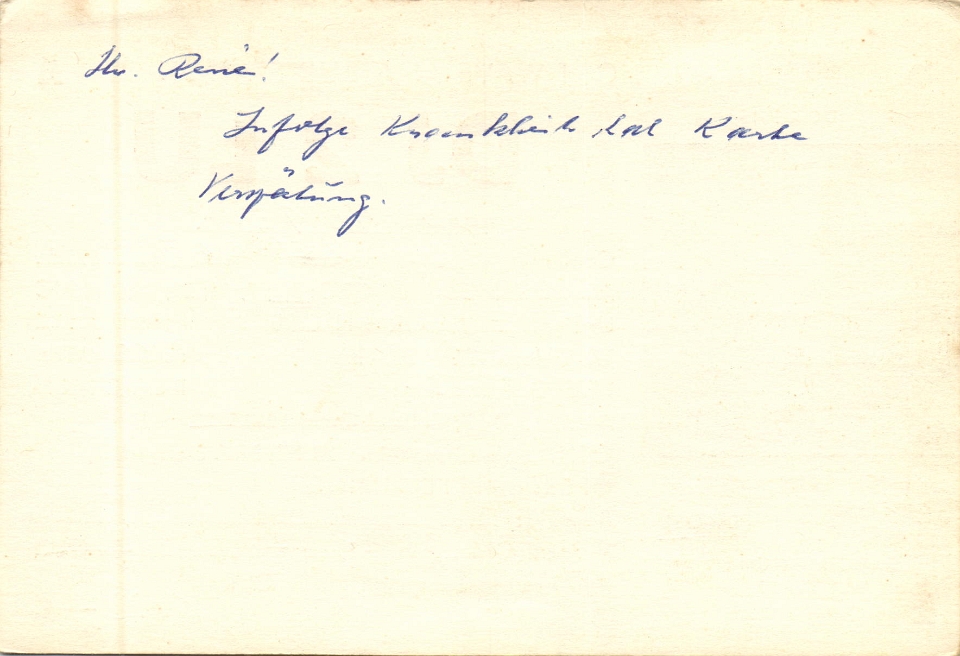 Hr. René!
Infolge Krankheit hat Karte
Verspätung.